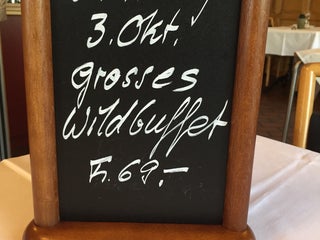 3. Okt.
Grosses
Wildbuffet
Fr. 69.-